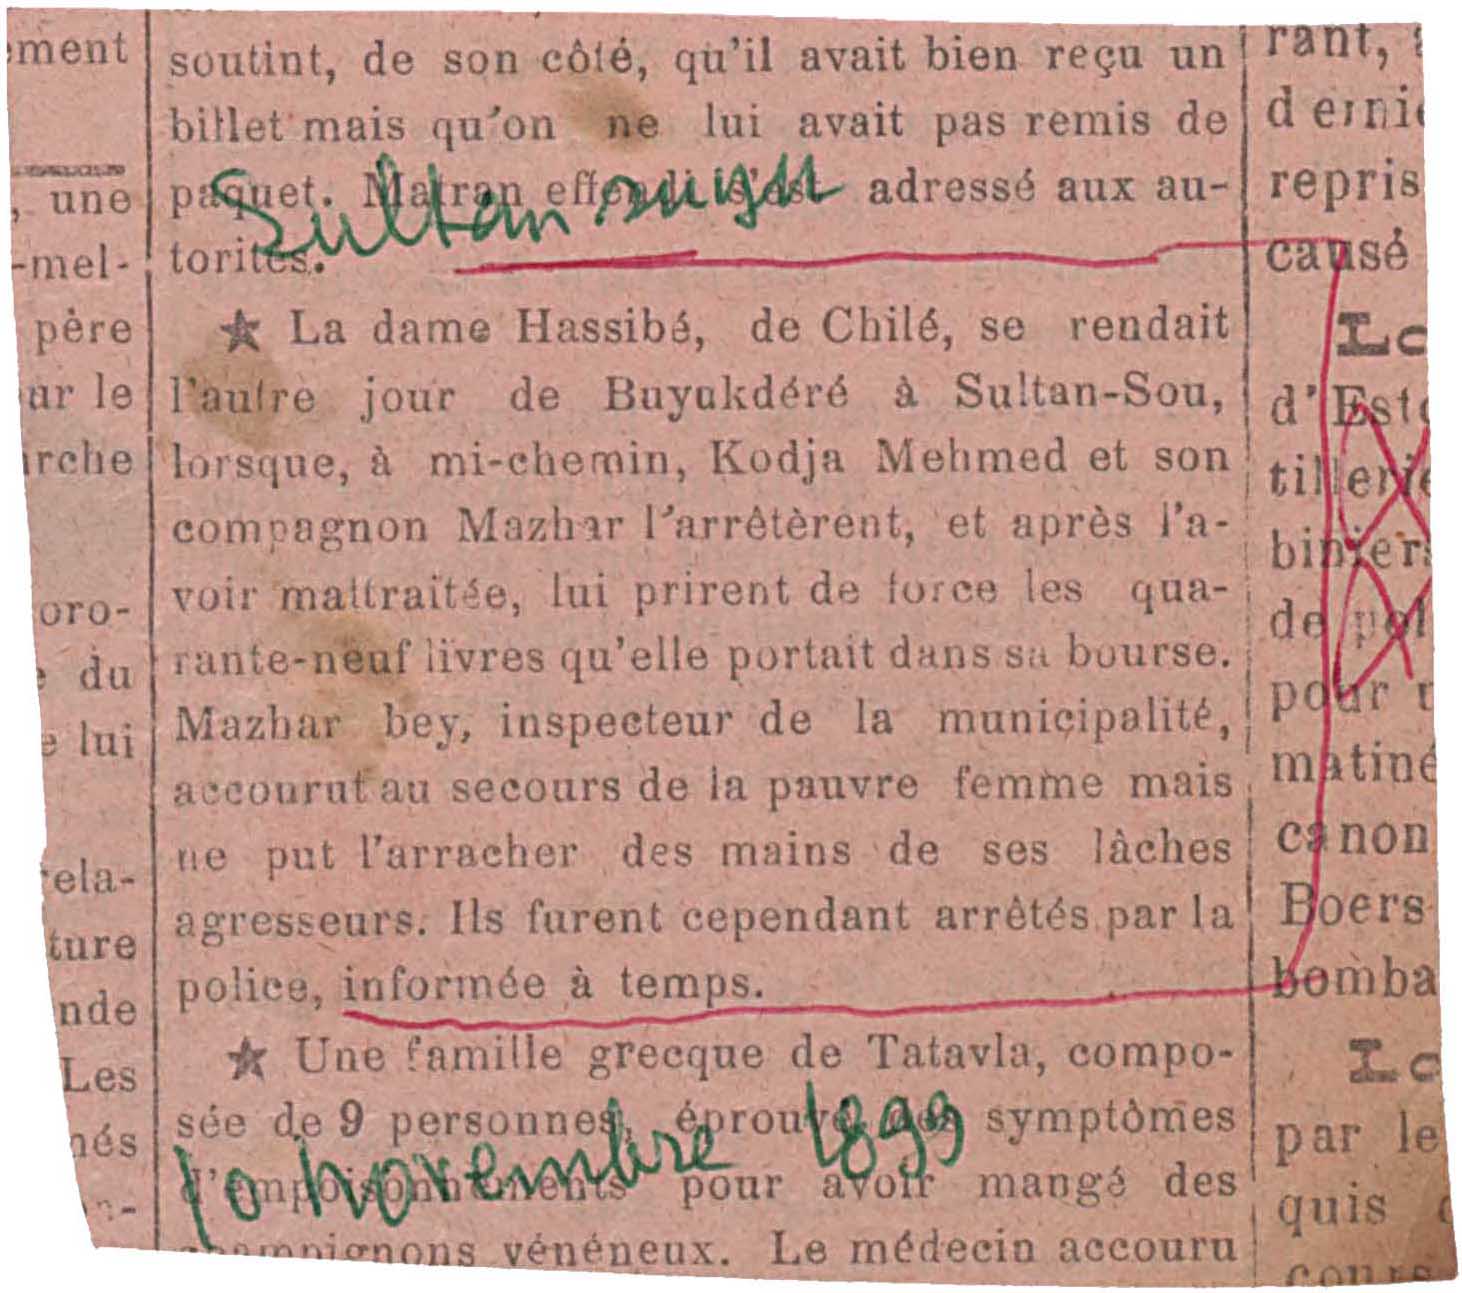 ement
une
-mel-
père
ur le
arche
oro-
du
lui
rela-
ture
nde
Les
nés
soutint, de son côté, qu'il avait bien reçu un
billet mais qu'on ne lui avait pas remis de
paquet. Matran effendi s'est adressé aux au-
torités.
Sultan suyu
★ La dame Hassibé, de Chilé, se rendait
l'autre jour de Buyukdéré à Sultan-Sou,
lorsque, à mi-chemin, Kodja Mehmed et son
compagnon Mazhar l'arrêtèrent, et après l'a-
voir maltraitée, lui prirent de force les qua-
rante-neuf livres qu'elle portait dans sa bourse.
Mazhar bey, inspecteur de la municipalité,
accourut au secours de la pauvre femme mais
ne put l'arracher des mains de ses lâches
agresseurs. Ils furent cependant arrêtés par la
police, informée à temps.
★ Une famille grecque de Tatavla, compo-
sée de 9 personnes, éprouve des symptômes
d'empoisonnements pour avoir mangé des
champignons vénéneux. Le médecin accouru
10 novembre 1899
rant,
dernie
repris
causé
Lo
d'Esto
tillerie
biniers
de pol
pour
matiné
canon
Boers
bomba
Lo
par le
quis
cours